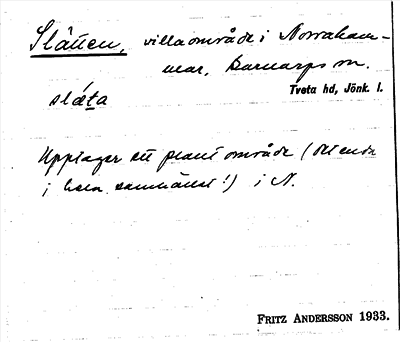 Slätten, villaområde i Norraham-
mar, Barnarps sn.
Tveta hd, Jönk. l.
slæta
Upptager ett plant område (det enda
i hela samhället!) i N.
FRITZ ANDERSSON 1933.